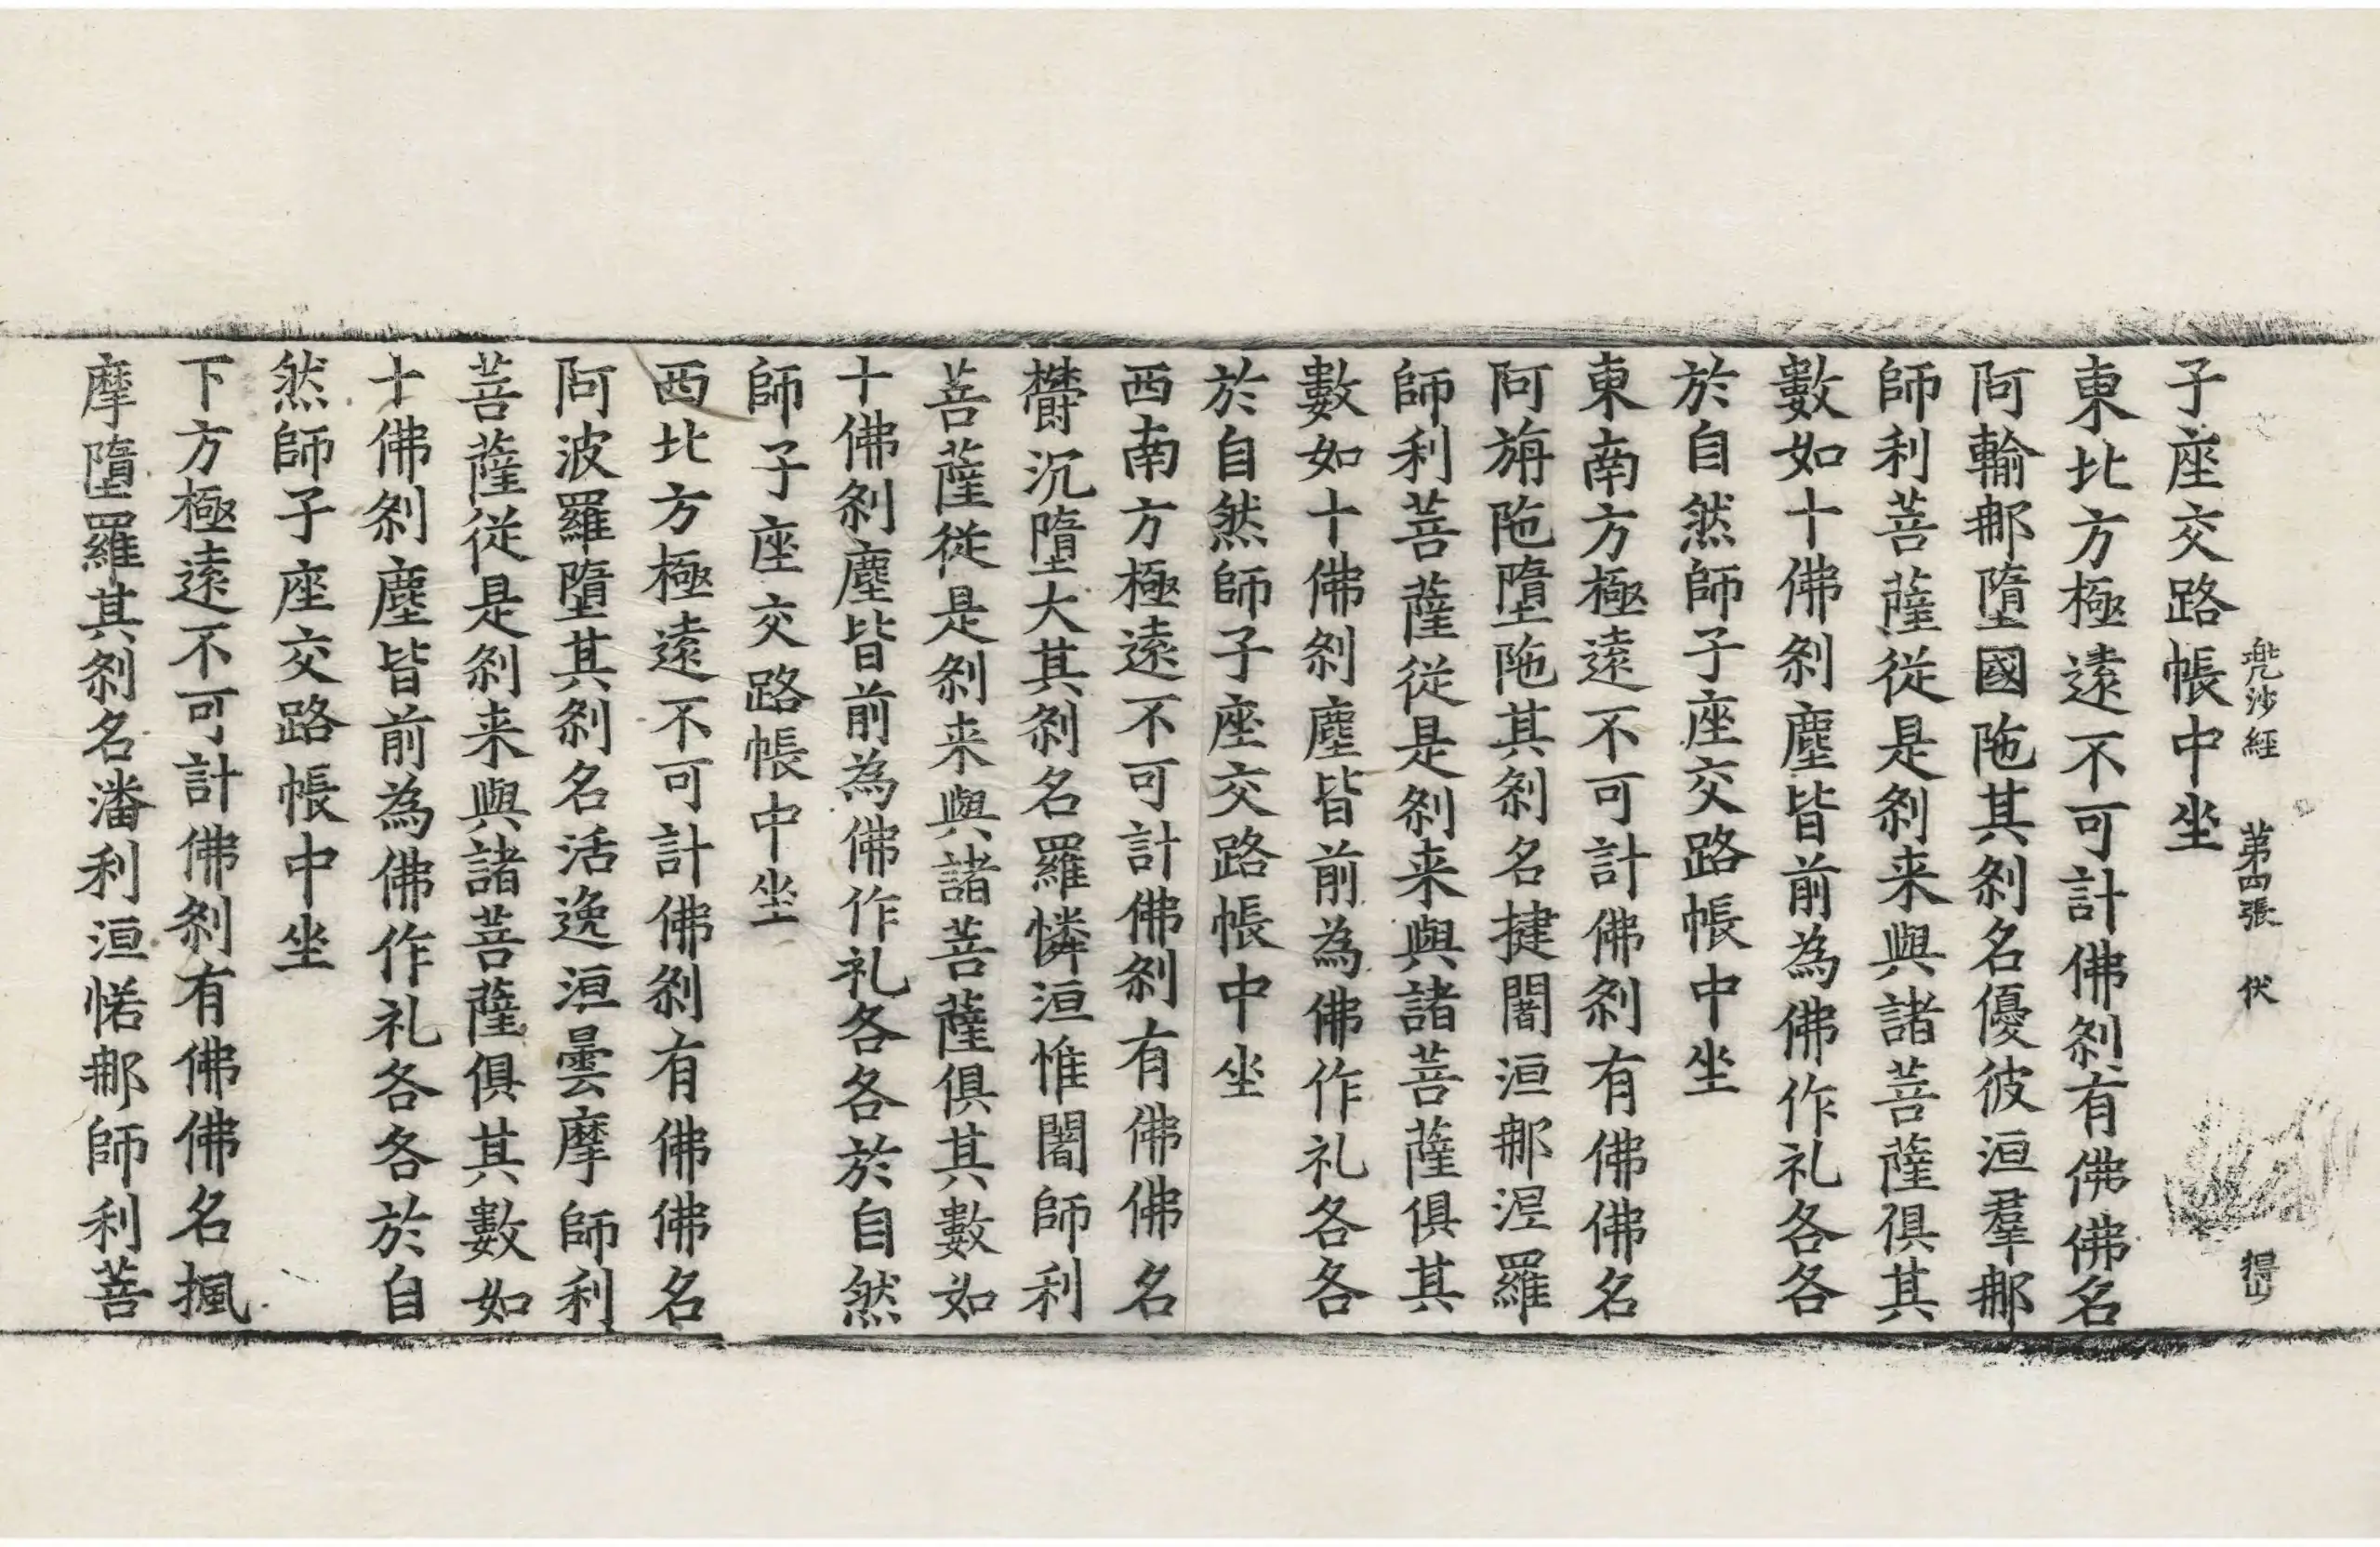 兜沙經　第四張　伏
子座交路帳中坐
東北方極遠不可計佛刹有佛佛名
阿輸那墮國陁其刹名優彼洹羣那
師利菩薩從是刹来與諸菩薩俱其
數如十佛刹塵皆前為佛作礼各各
於自然師子座交路帳中坐
東南方極遠不可計佛刹有佛佛名
阿旃陁墮陁其刹名揵闍洹那涺羅
師利菩薩從是刹来與諸菩薩俱其
數如十佛刹塵皆前為佛作礼各各
於自然師子座交路帳中坐
西南方極遠不可計佛刹有佛佛名
欝沉墮大其刹名羅憐洹惟闍師利
菩薩從是刹来與諸菩薩俱其數如
十佛刹塵皆前為佛作礼各各於自然
師子座交路帳中坐
西北方極遠不可計佛刹有佛佛名
阿波羅墮其刹名活逸洹曇摩師利
菩薩從是刹来與諸菩薩俱其數如
十佛刹塵皆前為佛作礼各各於自
然師子座交路帳中坐
下方極遠不可計佛刹有佛佛名楓
摩墮羅其刹名潘利洹惒那師利菩